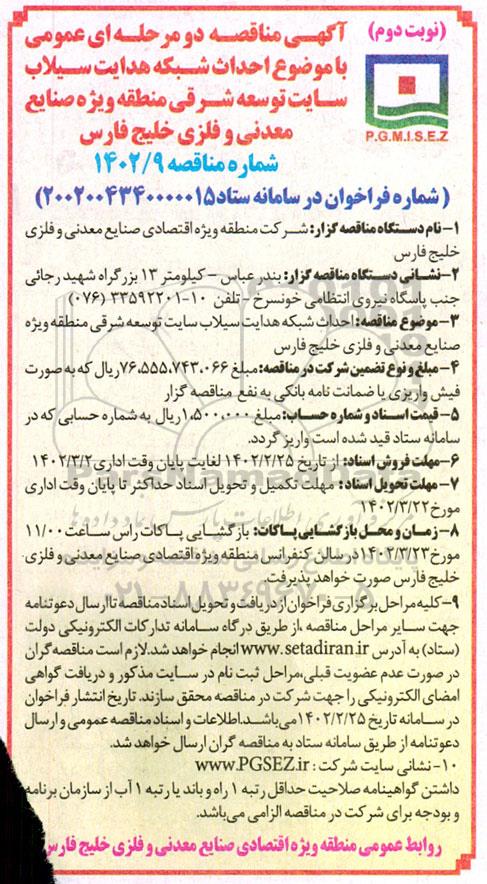 (نوبت دوم)
آگهی مناقصه دو مرحله ای عمومی
با موضوع احداث شبکه هدایت سیلاب
سایت توسعه شرقی منطقه ویژه صنایع
معدنی و فلزی خلیج فارس
P.G.M.I.S.E.Z
شماره مناقصه ۱۴۰۲/۹
(شماره فراخوان در سامانه ستاد۲۰۰۲۰۰۴۳۴۰۰۰۰۰۱۵)
۱-نام دستگاه مناقصه گزار: شرکت منطقه ویژه اقتصادی صنایع معدنی و فلزی
خلیج فارس
۲-نشانی دستگاه مناقصه گزار: بندر عباس - کیلومتر ۱۳ بزرگراه شهید رجائی
جنب پاسگاه نیروی انتظامی خونسرخ - تلفن ۱۰-۳۳۵۹۲۲۰۱ (۰۷۶)
۳-موضوع مناقصه: احداث شبکه هدایت سیلاب سایت توسعه شرقی منطقه ویژه
صنایع معدنی و فلزی خلیج فارس
۴-مبلغ و نوع تضمین شرکت در مناقصه: مبلغ ۷۶,۵۵۵,۷۴۳,۰۶۶ریال که به صورت
فیش واریزی یا ضمانت نامه بانکی به نفع مناقصه گزار
۵-قیمت اسناد و شماره حساب: مبلغ ۱,۵۰۰,۰۰۰ریال به شماره حسابی که در
سامانه ستاد قید شده است واریز گردد.
۶-مهلت فروش اسناد: از تاریخ ۱۴۰۲/۲/۲۵ لغایت پایان وقت اداری ۱۴۰۲/۳/۲
۷-مهلت تحویل اسناد: مهلت تکمیل و تحویل اسناد حداکثر تا پایان وقت اداری
مورخ ۱۴۰۲/۳/۲۲
۸-زمان و محل بازگشایی پاکات: بازگشایی پاکات راس ساعت ۱۱/۰۰
مورخ ۱۴۰۲/۳/۲۳در سالن کنفرانس منطقه ویژه اقتصادی صنایع معدنی و فلزی
خلیج فارس صورت خواهد پذیرفت.
۹-کلیه مراحل برگزاری فراخوان از دریافت و تحویل اسناد مناقصه تا ارسال دعوتنامه
جهت سایر مراحل مناقصه ،از طریق درگاه سامانه تدارکات الکترونیکی دولت
(ستاد) به آدرس www.setadiran.ir انجام خواهد شد.لازم است مناقصه گران
در صورت عدم عضویت قبلی،مراحل ثبت نام در سایت مذکور و دریافت گواهی
امضای الکترونیکی را جهت شرکت در مناقصه محقق سازند. تاریخ انتشار فراخوان
در سامانه تاریخ ۱۴۰۲/۲/۲۵می‌باشد.اطلاعات و اسناد مناقصه عمومی و ارسال
دعوتنامه از طریق سامانه ستاد به مناقصه گران ارسال خواهد شد.
۱۰-نشانی سایت شرکت : www.PGSEZ.ir
داشتن گواهینامه صلاحیت حداقل رتبه ۱ راه و باند یا رتبه ۱ آب از سازمان برنامه
و بودجه برای شرکت در مناقصه الزامی می‌باشد.
روابط عمومی منطقه ویژه اقتصادی صنایع معدنی و فلزی خلیج فارس
۰۲۱-۸۸۳۴۹۶۷۰-۵